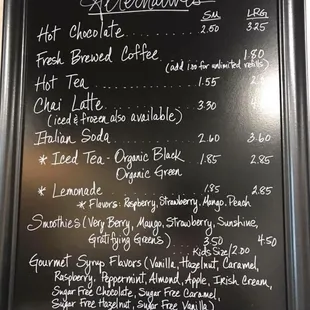 Alternatives
SM. LRG
Hot Chocolate 2.50 3.25
Fresh Brewed Coffee 1.80
(add 1.00 for unlimited refills)
Hot Tea 1.55
Chai Latte 3.30
(iced & frozen also available)
Italian Soda 2.60 3.60
* Iced Tea - Organic Black 1.85 2.85
Organic Green
* Lemonade 1.85 2.85
* Flavors: Raspberry, Strawberry, Mango, Peach
Smoothies (Very Berry, Mango, Strawberry, Sunshine,
Gratifying Greens) 3.50 4.50
Kids Size/2.00
Gourmet Syrup Flavors (Vanilla, Hazelnut, Caramel,
Raspberry, Peppermint, Almond, Apple, Irish Cream,
Sugar Free Chocolate, Sugar Free Caramel,
Sugar Free Hazelnut, Sugar Free Vanilla)